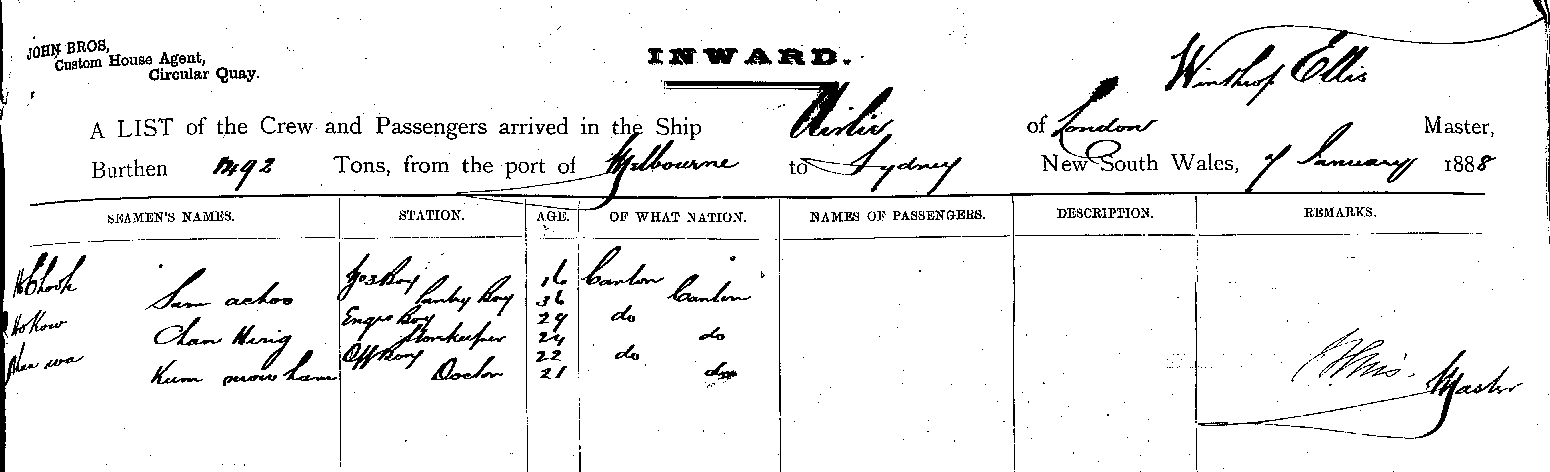 JOHN BROS,
Custom House Agent,
Circular Quay.
INWARD.
Winthrop Ellis
A LIST of the Crew and Passengers arrived in the Ship Airlie of London Master,
Burthen 1492 Tons, from the port of Melbourne to Sydney New South Wales, 7 January 1888
SEAMEN'S NAMES. STATION. AGE. OF WHAT NATION. NAMES OF PASSENGERS. DESCRIPTION. REMARKS.
Ho Chook Boy 16 Canton
Sam achoo Pantry Boy 36 Canton
Ho Kow Engrs Boy 29 do
Chan Hing Storekeeper 24 do
wa Off Boy 22 do
Kum Doctor 21 do
Ellis. Master